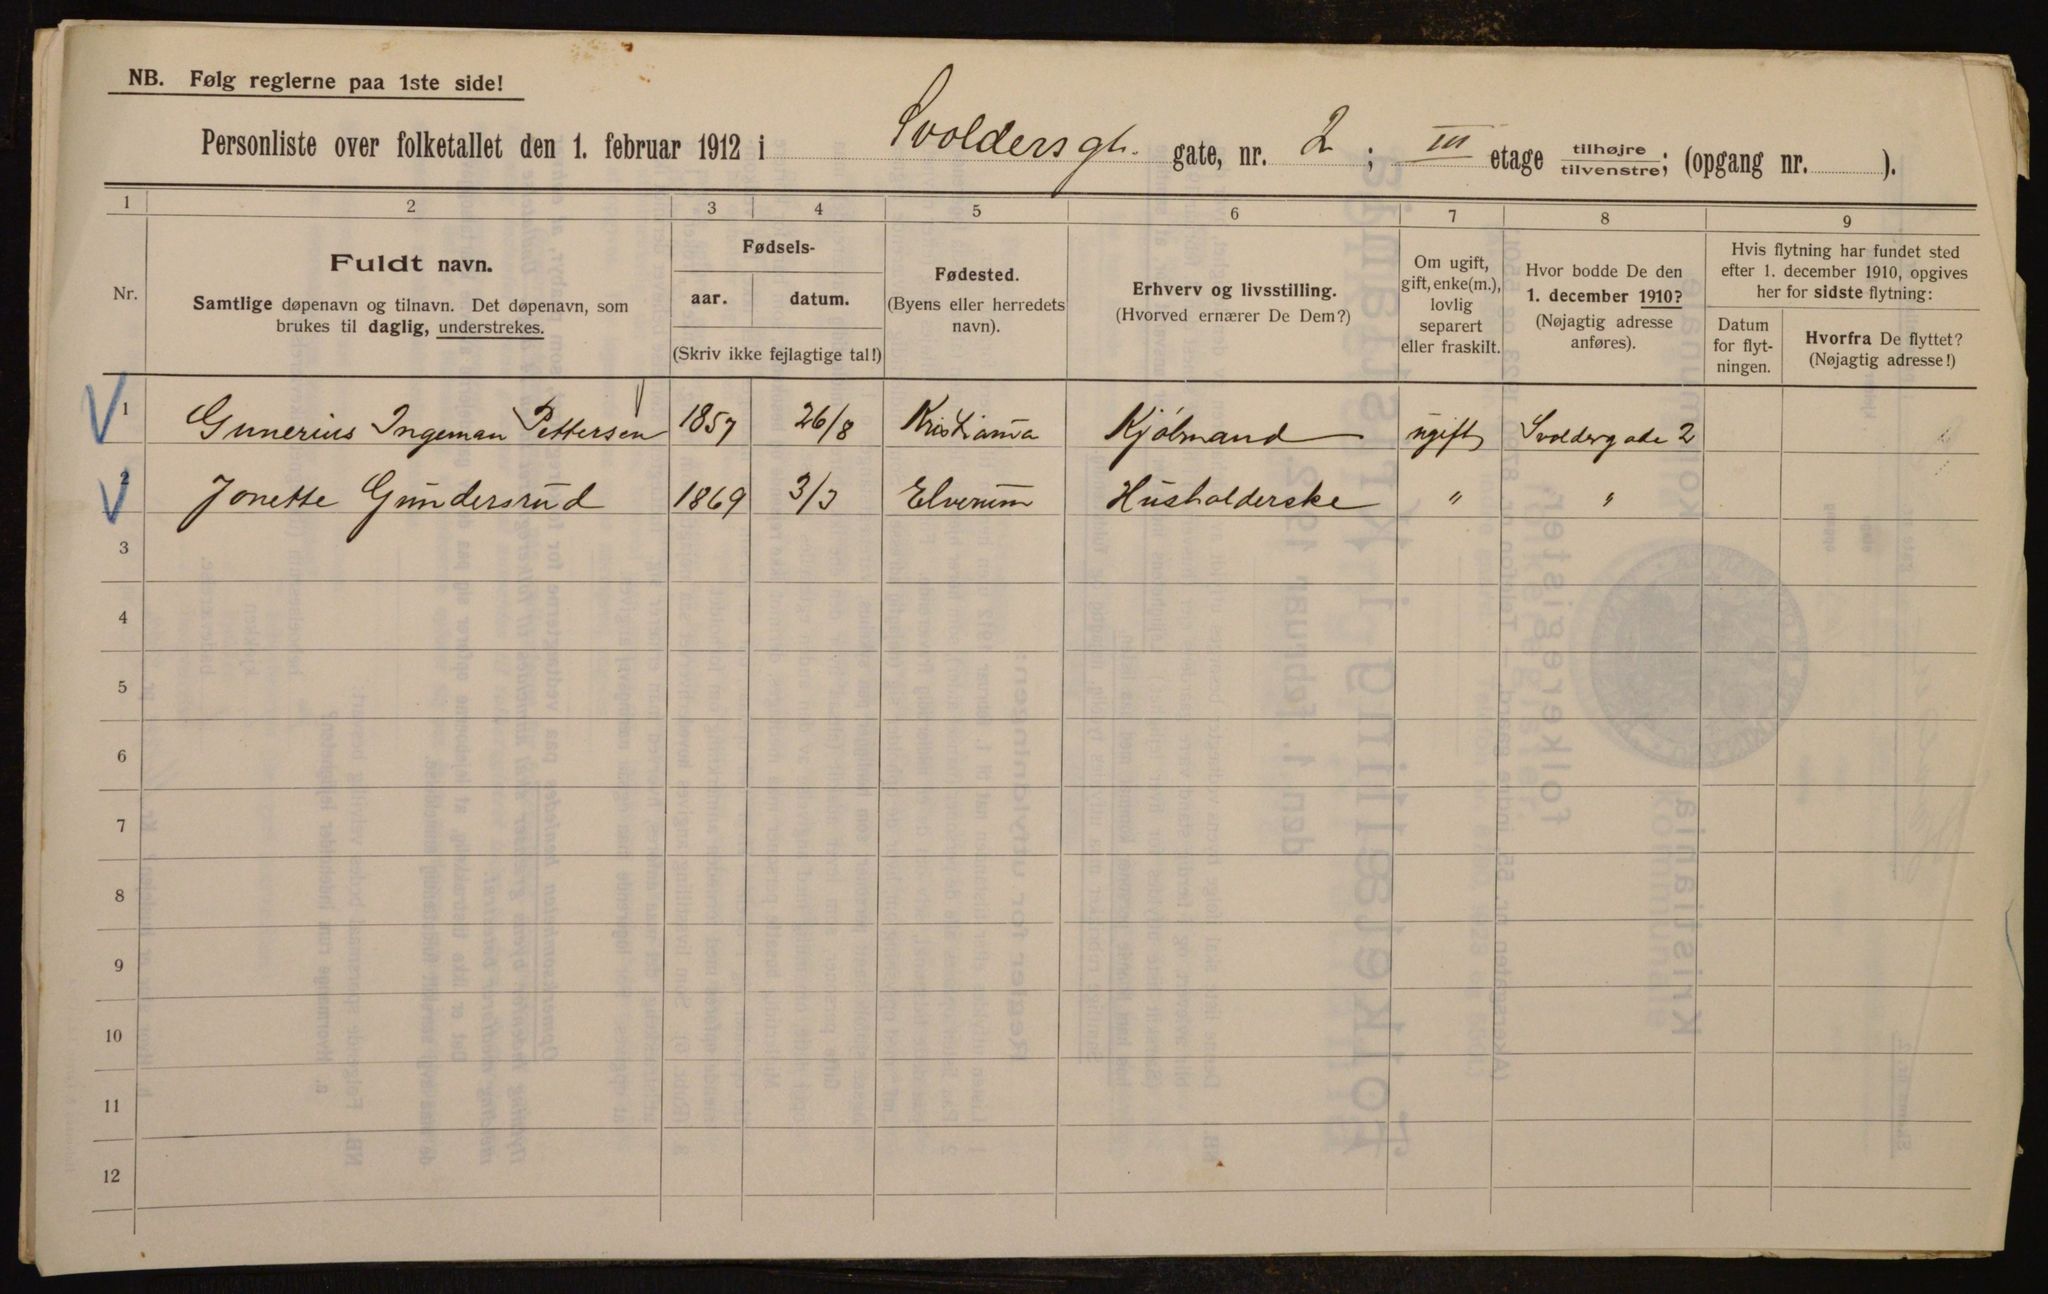 NB. Følg reglerne paa 1ste side!
Personliste over folketallet den 1. februar 1912 i Svoldersgt. gate, nr. 2; III etage tilhøjre/tilvenstre; (opgang nr. ).
1 2 3 4 5 6 7 8 9
Nr.
Fuldt navn.
Samtlige døpenavn og tilnavn. Det døpenavn, som
brukes til daglig, understrekes.
Fødsels-
aar. datum.
(Skriv ikke fejlagtige tal!)
Fødested.
(Byens eller herredets
navn).
Erhverv og livsstilling.
(Hvorved ernærer De Dem?)
Om ugift,
gift, enke(m.),
lovlig
separert
eller fraskilt.
Hvor bodde De den
1. december 1910?
(Nøjagtig adresse
anføres).
Hvis flytning har fundet sted
efter 1. december 1910, opgives
her for sidste flytning:
Datum
for flyt-
ningen.
Hvorfra De flyttet?
(Nøjagtig adresse!)
1 Gunerius Ingeman Pettersen 1857 26/8 Kristiania Kjøbmand ugift Svoldergade 2
2 Jonette Gundersrud 1869 3/3 Elverum Husholderske " "
3
4
5
6
7
8
9
10
11
12